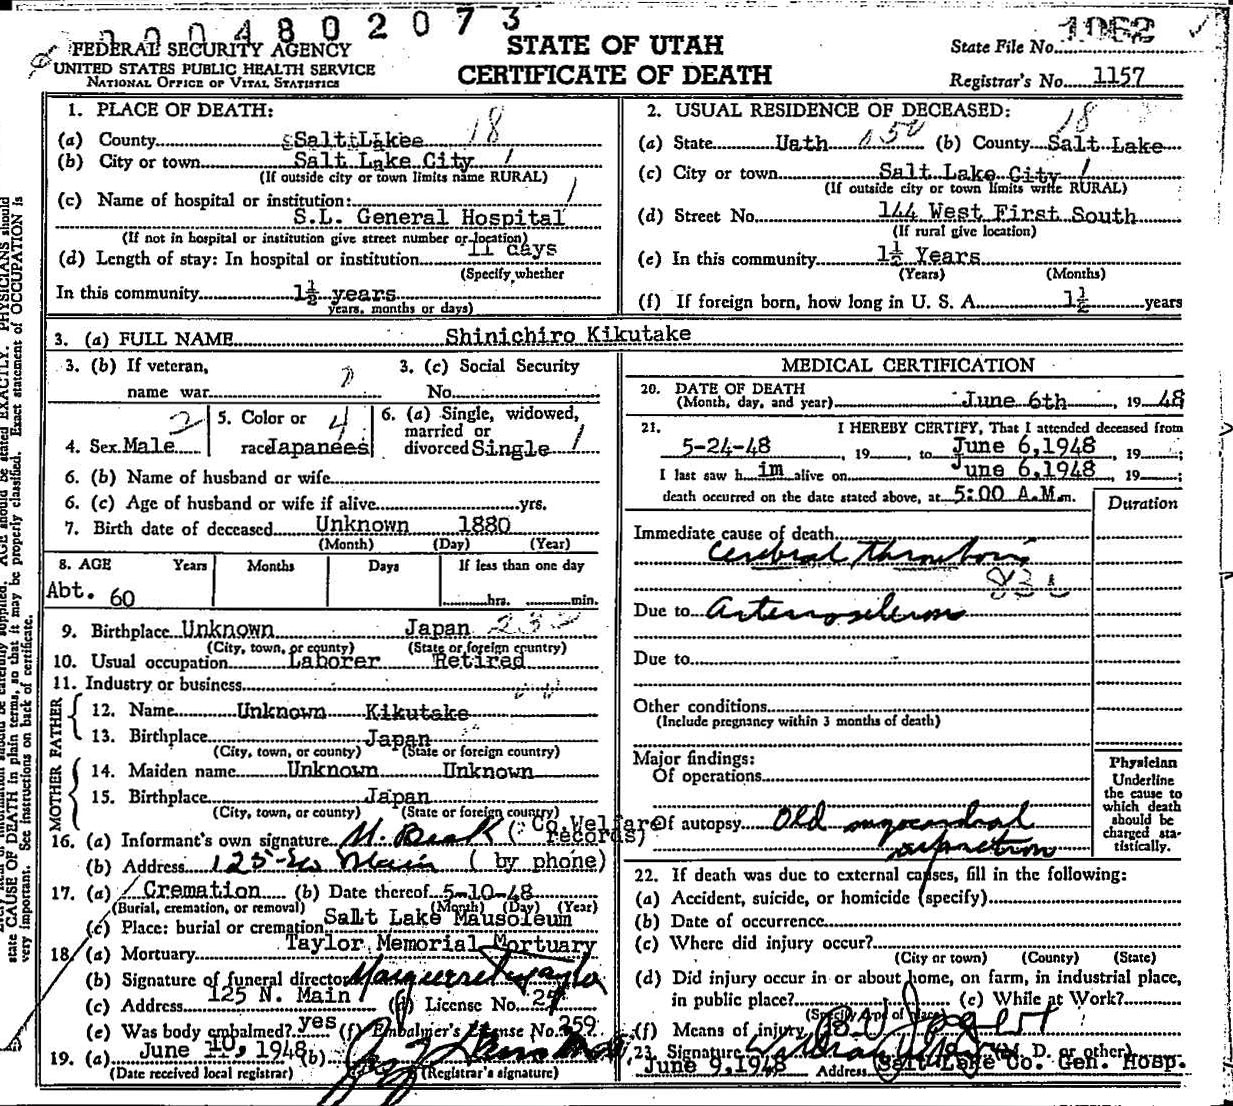 0004802073
FEDERAL SECURITY AGENCY
UNITED STATES PUBLIC HEALTH SERVICE
NATIONAL OFFICE OF VITAL STATISTICS
STATE OF UTAH
CERTIFICATE OF DEATH
State File No. 1062
Registrar's No. 1157
1. PLACE OF DEATH: 18
(a) County Salt Lakee
(b) City or town Salt Lake City 1
(If outside city or town limits name RURAL)
(c) Name of hospital or institution: 1
S.L. General Hospital
(If not in hospital or institution give street number or location)
(d) Length of stay: In hospital or institution 11 days
(Specify whether
In this community 1½ years
years, months or days)
2. USUAL RESIDENCE OF DECEASED: 18
(a) State Uath 050 (b) County Salt Lake
(c) City or town Salt Lake City 1
(If outside city or town limits write RURAL)
(d) Street No. 144 West First South
(If rural give location)
(e) In this community 1½ Years
(Years) (Months)
(f) If foreign born, how long in U. S. A. 1½ years
3. (a) FULL NAME Shinichiro Kikutake
3. (b) If veteran,
name war
3. (c) Social Security
No.
4. Sex Male 2
5. Color or 4
race Japanees
6. (a) Single, widowed,
married or
divorced Single 1
6. (b) Name of husband or wife
6. (c) Age of husband or wife if alive yrs.
7. Birth date of deceased Unknown 1880
(Month) (Day) (Year)
8. AGE Years Months Days If less than one day
Abt. 60 hrs. min.
9. Birthplace Unknown Japan
(City, town, or county) (State or foreign country)
10. Usual occupation Laborer Retired
11. Industry or business
FATHER
12. Name Unknown Kikutake
13. Birthplace Japan
(City, town, or county) (State or foreign country)
MOTHER
14. Maiden name Unknown Unknown
15. Birthplace Japan
(City, town, or county) (State or foreign country)
16. (a) Informant's own signature M. Beak ( Co. Welfare
records)
(b) Address 125 So Main ( by phone)
17. (a) Cremation (b) Date thereof 5-10-48
(Burial, cremation, or removal) (Month) (Day) (Year)
(c) Place: burial or cremation Salt Lake Mausoleum
18. (a) Mortuary Taylor Memorial Mortuary
(b) Signature of funeral director Taylor
(c) Address 125 N. Main (d) License No. 29
(e) Was body embalmed? yes (f) Embalmer's License No. 259
19. (a) June 10, 1948 (b)
(Date received local registrar) (Registrar's signature)
MEDICAL CERTIFICATION
20. DATE OF DEATH
(Month, day, and year) June 6th, 19 48
21. I HEREBY CERTIFY, That I attended deceased from
5-24-48, 19 , to June 6,1948, 19 ;
I last saw h im alive on June 6,1948, 19 ;
death occurred on the date stated above, at 5:00 A.M. m.
Duration
Immediate cause of death
Cerebral thrombosis
Due to Arteriosclerosis
Due to
Other conditions
(Include pregnancy within 3 months of death)
Major findings:
Of operations
Of autopsy Old myocardial
infarction
Physician
Underline
the cause to
which death
should be
charged sta-
tistically.
22. If death was due to external causes, fill in the following:
(a) Accident, suicide, or homicide (specify)
(b) Date of occurrence
(c) Where did injury occur?
(City or town) (County) (State)
(d) Did injury occur in or about home, on farm, in industrial place,
in public place? (e) While at Work?
(Specify type of place)
(f) Means of injury
23. Signature (M. D. or other)
June 9,1948 Address Salt Lake Co. Gen. Hosp.